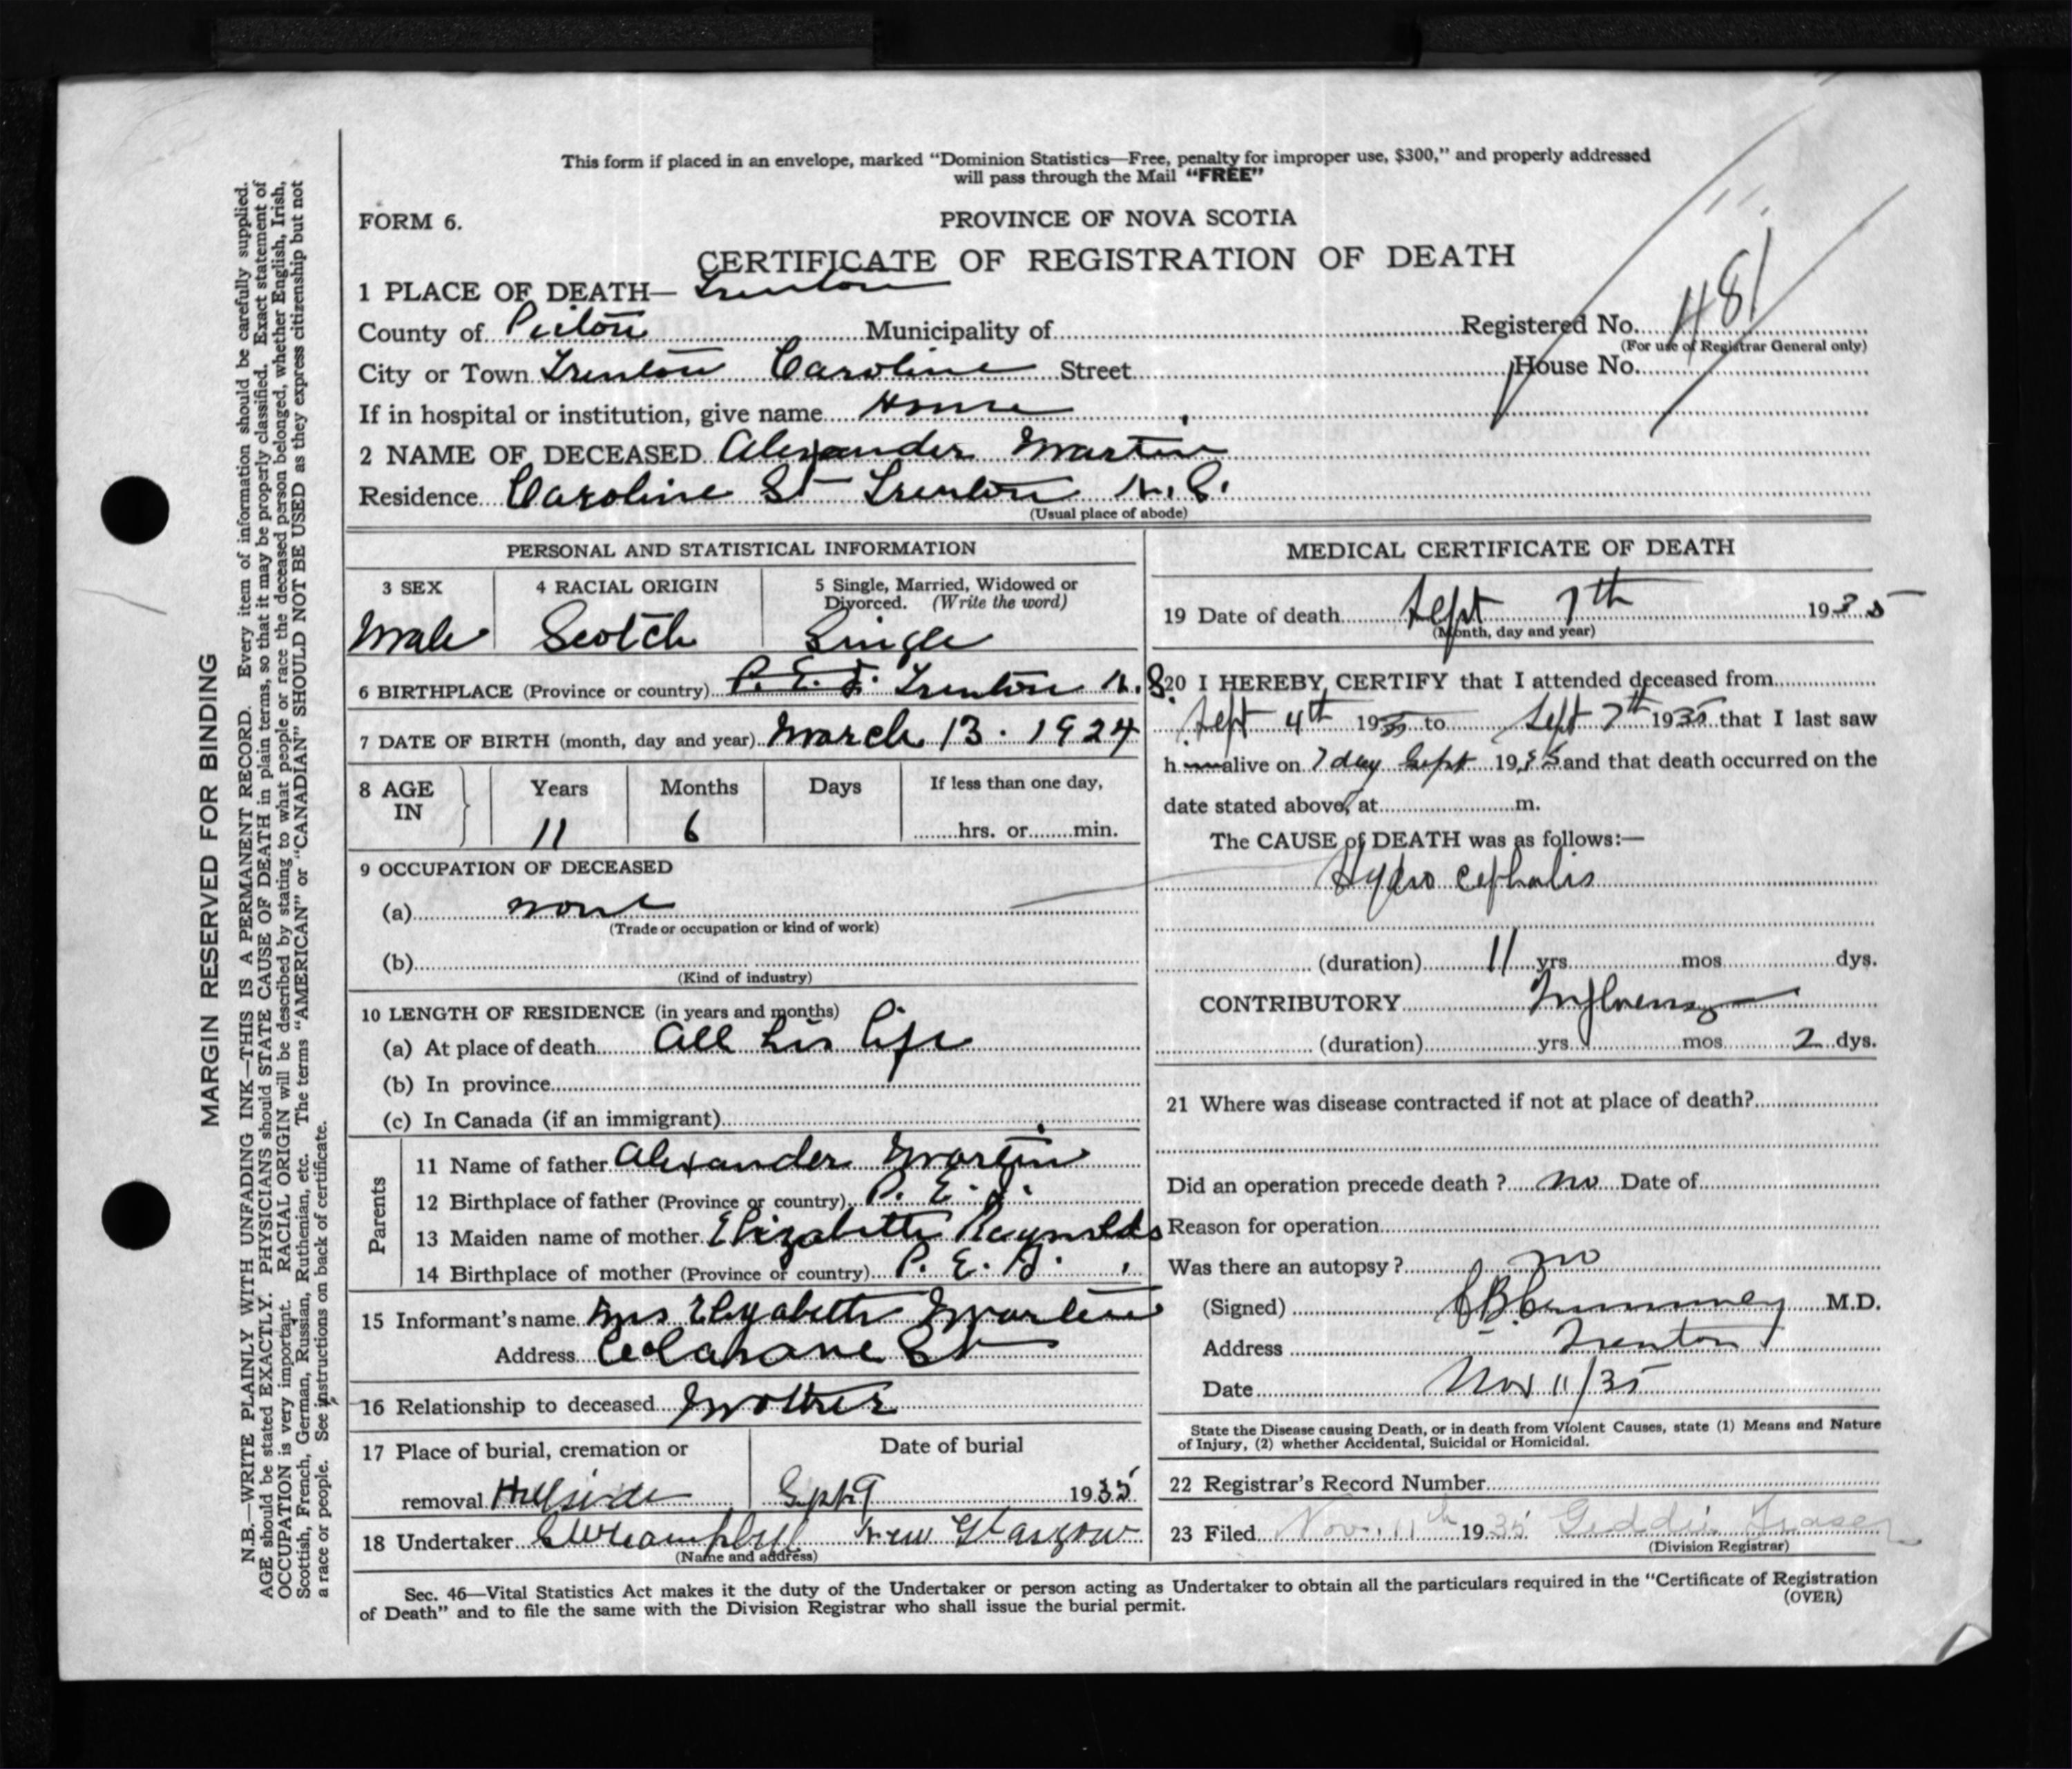 This form if placed in an envelope, marked "Dominion Statistics—Free, penalty for improper use, $300," and properly addressed
will pass through the Mail "FREE"
FORM 6.
PROVINCE OF NOVA SCOTIA
CERTIFICATE OF REGISTRATION OF DEATH
1 PLACE OF DEATH— Trenton
County of Pictou Municipality of Registered No. 481
(For use of Registrar General only)
City or Town Trenton Caroline Street House No.
If in hospital or institution, give name Home
2 NAME OF DECEASED Alexander Martin
Residence Caroline St Trenton N.S.
(Usual place of abode)
PERSONAL AND STATISTICAL INFORMATION
3 SEX 4 RACIAL ORIGIN 5 Single, Married, Widowed or
Divorced. (Write the word)
Male Scotch Single
6 BIRTHPLACE (Province or country) P.E.I. Trenton N.S.
7 DATE OF BIRTH (month, day and year) March 13. 1924
8 AGE IN Years Months Days If less than one day,
11 6 hrs. or min.
9 OCCUPATION OF DECEASED
(a) none
(Trade or occupation or kind of work)
(b)
(Kind of industry)
10 LENGTH OF RESIDENCE (in years and months)
(a) At place of death All his life
(b) In province
(c) In Canada (if an immigrant)
Parents
11 Name of father Alexander Martin
12 Birthplace of father (Province or country) P.E.I.
13 Maiden name of mother Elizabeth Reynolds
14 Birthplace of mother (Province or country) P.E.I.
15 Informant's name Mrs Elizabeth Martin
Address St
16 Relationship to deceased Mother
17 Place of burial, cremation or Date of burial
removal Hillside Sept 9 1935
18 Undertaker Campbell New Glasgow
(Name and address)
MEDICAL CERTIFICATE OF DEATH
19 Date of death Sept 7th 1935
(Month, day and year)
20 I HEREBY CERTIFY that I attended deceased from
Sept 4th 1935 to Sept 7th 1935 that I last saw
h im alive on 7 day Sept 1935 and that death occurred on the
date stated above, at m.
The CAUSE of DEATH was as follows:—
Hydro cephalis
(duration) 11 yrs mos dys.
CONTRIBUTORY Influenza
(duration) yrs mos 2 dys.
21 Where was disease contracted if not at place of death?
Did an operation precede death? no Date of
Reason for operation
Was there an autopsy? no
(Signed) M.D.
Address Trenton
Date Nov 11/35
State the Disease causing Death, or in death from Violent Causes, state (1) Means and Nature
of Injury, (2) whether Accidental, Suicidal or Homicidal.
22 Registrar's Record Number
23 Filed Nov. 11th 1935 Geddie Fraser
(Division Registrar)
Sec. 46—Vital Statistics Act makes it the duty of the Undertaker or person acting as Undertaker to obtain all the particulars required in the "Certificate of Registration
of Death" and to file the same with the Division Registrar who shall issue the burial permit.
(OVER)
MARGIN RESERVED FOR BINDING
N.B.—WRITE PLAINLY WITH UNFADING INK—THIS IS A PERMANENT RECORD. Every item of information should be carefully supplied.
AGE should be stated EXACTLY. PHYSICIANS should STATE CAUSE OF DEATH in plain terms, so that it may be properly classified. Exact statement of
OCCUPATION is very important. RACIAL ORIGIN will be described by stating to what people or race the deceased person belonged, whether English, Irish,
Scottish, French, German, Russian, Ruthenian, etc. The terms "AMERICAN" or "CANADIAN" SHOULD NOT BE USED as they express citizenship but not
a race or people. See instructions on back of certificate.